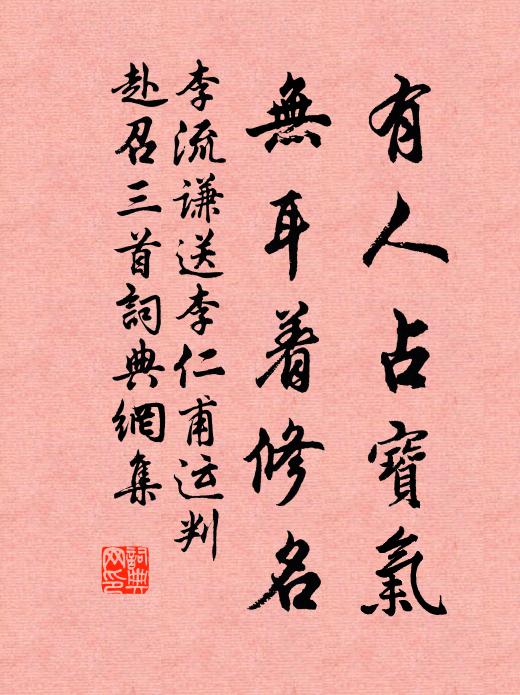 有人占寶氣
無耳着修名
李流谦送李仁甫运判
赴召三首詞典網集
詞典网印